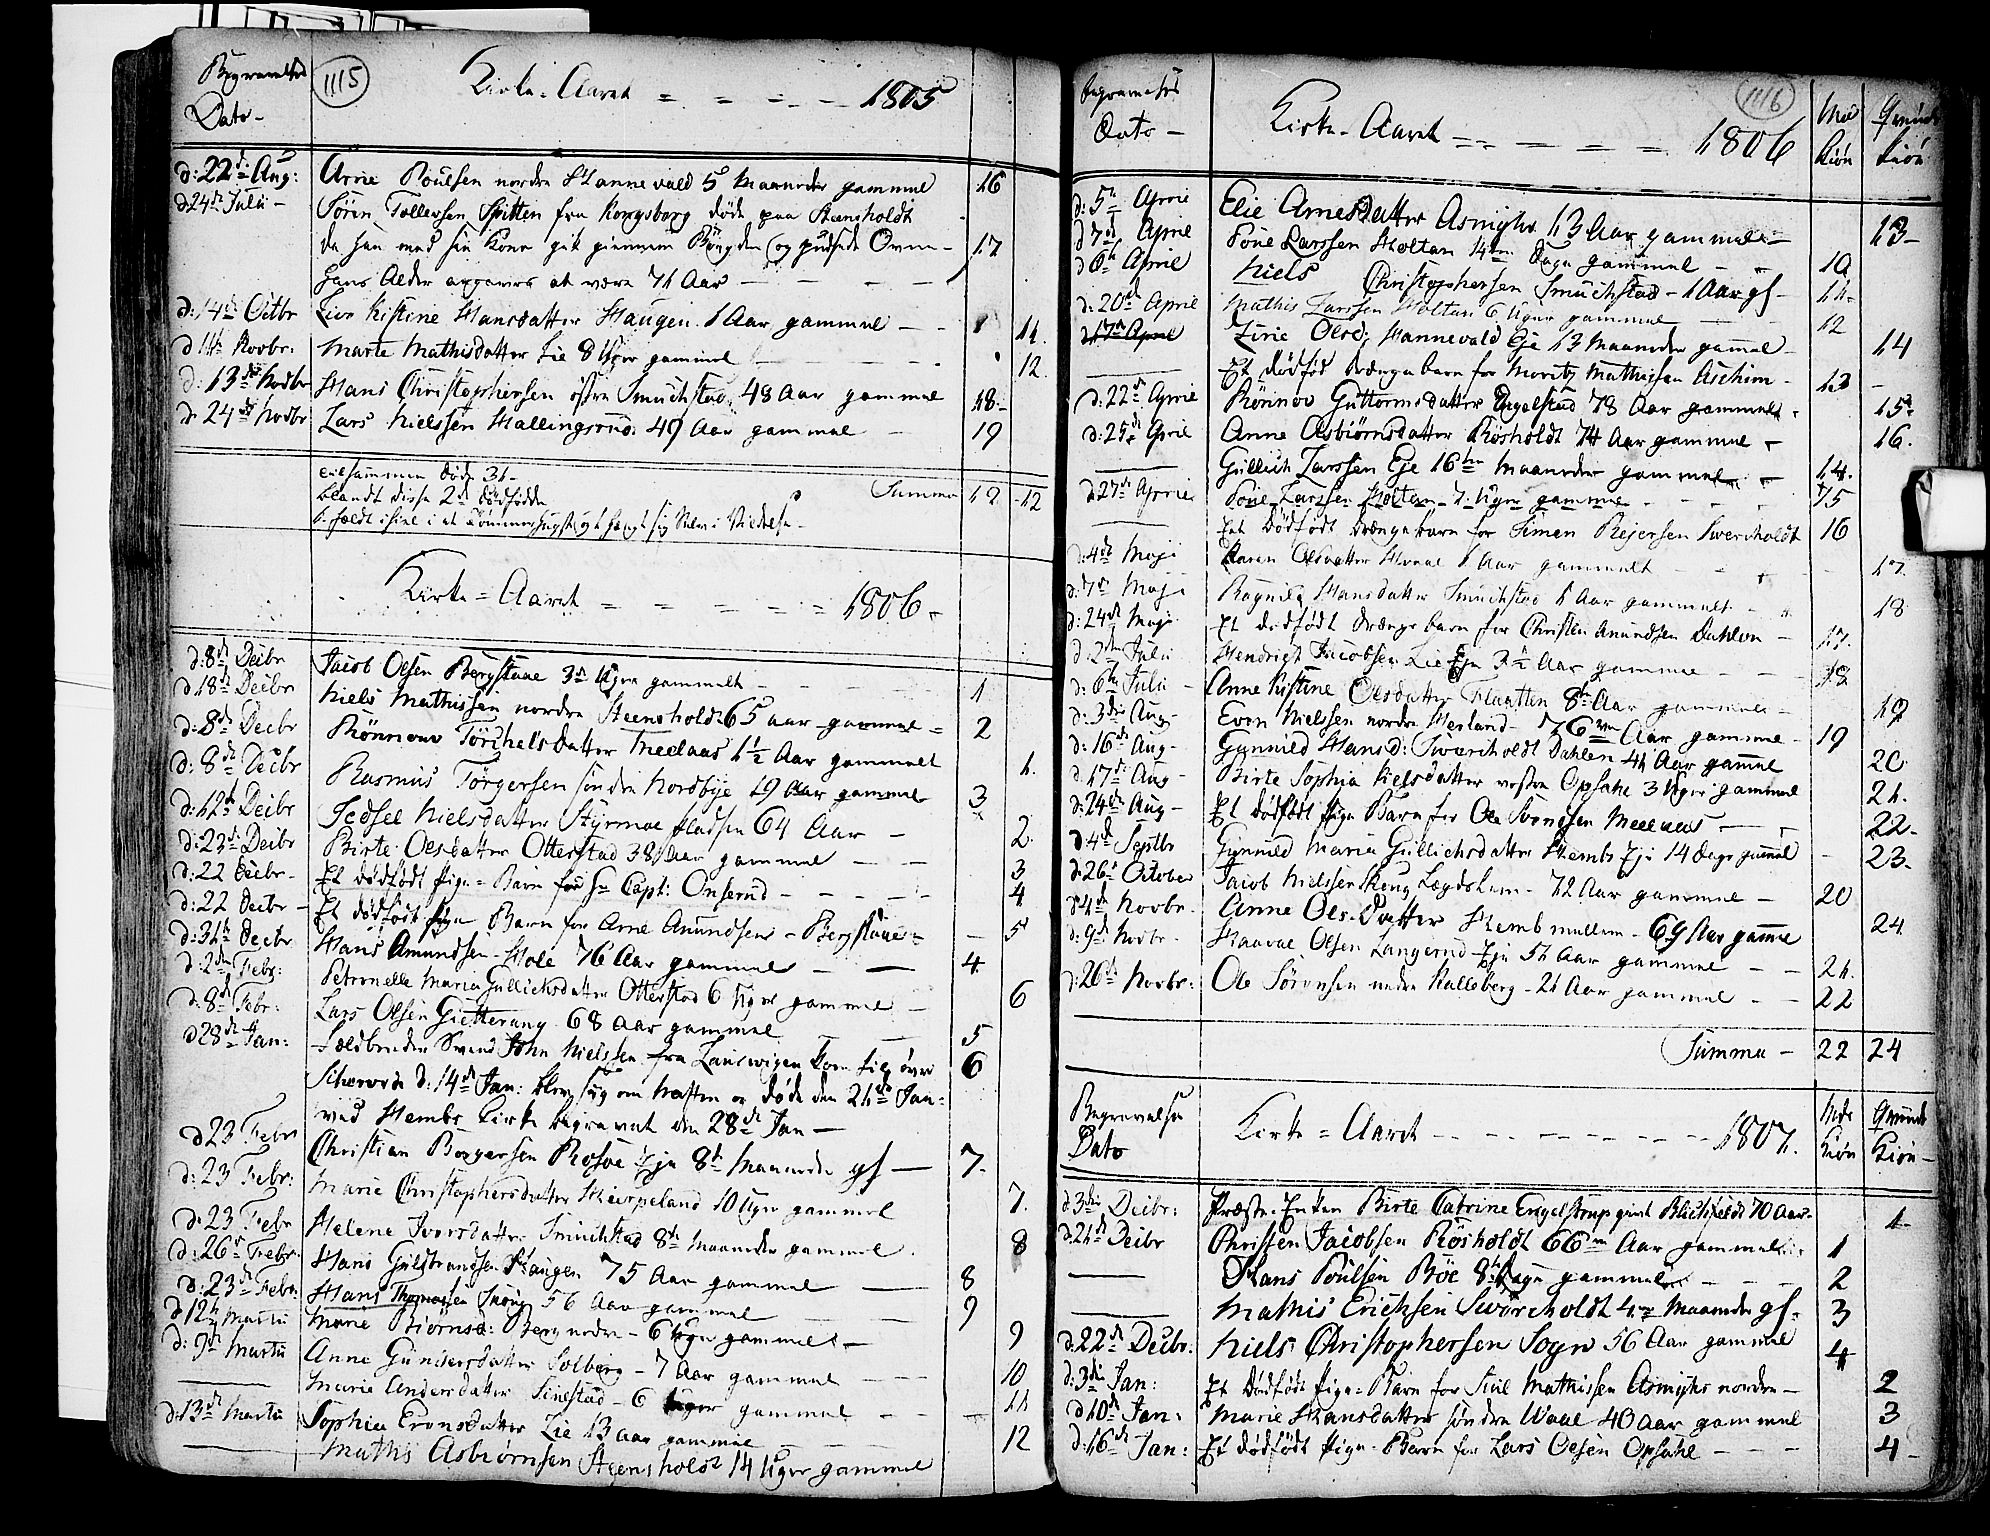 Begravelses
Dato –
1115
Kirke = Aaret = = = – – 1805
d: 22de Aug: Arne Poulsen nordre Hannevald 5 Maaneder gammel 16
d 24de Julii – Sören Tollefsen Spitten fra Kongsberg døde paa Steensholdt
da han med sin Kone gik giennem Bÿgden (og pudsede Ovne – 17
hans Alder angives at være 71 Aar – – – –
d: 14de Octbr Live Kistine Hansdatter Haugen 1 Aar gammel – – 11.
d 14 Novbr: Marte Mathisdatter Lie 8 Uger gammel – – – 12.
d: 13de Novbr Hans Christophersen östre Smuchstad 48 Aar gammel 18 –
d: 24de Novbr Lars Nielssen Hallingsrud 49 Aar gammel – 19
tilsammen døde 31 –
blandt disse 2de dødfødde Summa 19 – 12
1806 –
Kirke = Aaret = = = = = = 1806 –
d: 8de Decbr Jacob Olsen Bergstaae 3de Uger gammelt – – – 1
d 18de Decbr Niels Mathissen nordre Steensholdt 65 aar gammel = 2
d: 8de Decbr Rönnove Törchelsdatter Meelaas 1½ Aar gammelt 1.
d: 8de Decbr Rasmus Törgersen söndre Nordbÿe 19 Aar gammel 3
d: 12te Decbr Sedsel Nielsdatter Stÿrmoe 64 Aar – 2.
d: 23de Decbr Birte Olesdatter Otterstad 38 Aar gammel – – 3
d: 22 Decbr – Et dødfødt Pige = Barn for Hr Capt: Onserud – – – – 4
d: 22 Decbr – Et dødfødt Pige Barn for Arne Amundsen – Bergstaae = – 5
d: 31te Decbr Hans Amundsen Hole 76 Aar gammel – — 4
d: 2den Febr: Petronelle Maria Gullichsdatter Otterstad 6 Uger gammel – 6
d: 8de Febr: Lars Olsen Gietterang 68 Aar gammel – – 5
d 28de Jan: Svend John Nielssen fra Laurwigen kom sig over 6
d: 14de Jan: om Natten og døde den 21de Jan:
ved Hembs Kirke begravet den 28de Jan –
d 23 Febr Christian Borgersen Rosøe Eje 8te Maaneder gl — 7.
d: 23 Febr: Marie Christophersdatter Hierpeland 10 Uger gammel 7.
d: 23 Febr Helene Iversdatter Smuchstad 8te Maaneder gammel 8
d: 26de Febr. Hans Guldbrandsen Haugen 75 Aar gammel — 8
d: 23de Febr: Hans Thomassen Skoug 56 Aar gammel – – 9
d 12te Martii Marie Biörnsd: Berg nedre – 6 Uger gammel – 9
d: 9de Martii Anne Gundersdatter Solberg – 7 Aar gammel – – – 10
—— Marie Andersdatter Sinestad – 6 Uger gammel – – – 11
d: 13de Martii Sophia Evensdatter Lie 13 aar gammel – – – 12
—— Mathis Asbiörnsen Steensholdt 14 Uger gammel
Begravelses
Dato –
1116
Kirke – Aaret = = – – – = 1806
Mand
Kiøn
Qvinde
Kiøn
d: 5te April Elie Arnesdatter Asmyhr 13 Aar gammel – 13 –
d 7de April Poul Larssen Holtan 4re Dage gammel – – 10
d 6te April Niels Christophersen Smuchstad – 1 Aar gl – 11 –
d: 20de April Mathis Larssen Holtan 6 Uger gammel — 12
d 17de April Zirie Olesd: Hannevald Eje 13 Maaneder gammel – 14
—— Et dødfød Drengebarn for Moritz Mathissen Aschim – 13 –
d: 22de April Rönnov Guttormsdatter Engelstad 78 Aar gammel. 15.
d: 25de April Anne Asbiörnsdatter Rösholdt 74 Aar gammel – 16.
—— Gullich Larssen Eje 16ten Maaneder gammel – 14.
d 27de April Poul Larssen Holtan 7 Uger gammel – – – 15
—— Et dødfødt Drengebarn for Simen Rejersen Sverholdt 16
d: 4de Maji Karen Olsdatter 1 Aar gammelt – – – 17.
d: 7de Maji Ragnild Hansdatter Smuchstad 1 Aar gammelt – 18
d: 24de Maji Et dødfødt Drengebarn for Christen Amundsen Dahlen – 17.
d: 2den Julii Hendrich Jacobsen Lie Eje 3½ Aar gammel – – – 18
d: 6te Julii – Anne Kistine Olesdatter Flaatten 8te Aar gammel – 19
d: 3die Aug – Even Nielssen nordre Herland – 76 Aar gammel – 19
d: 16de Aug – Gunnild Hansd: Sverholdt Dahlen 41 Aar gammel 20
d: 17de Aug – Birte Sophia Nielsdatter vestre Opsahl 3 Uger gammel 21.
d: 24de Aug – Et dødfødt Pige Barn for Ole Svensen Meelaas — – 22 –
d 4de Septbr Gunnild Maria Gullichsdatter Hembs Eje 14 Dage gammel – 23.
d: 26de October Jacob Nielssen Skoug Lægdslem – 72 Aar gammel – 20
d 4de Novbr. Anne Oles-Datter Hemb mellem – 69 Aar gammel 24
d: 9de Novbr – Haavel Olsen Langerud Eje 51 Aar gammel – – 21.
d: 26de Novbr: Ole Sörensen nedre Kalleberg – 21 Aar gammel – – 22
Summa – 22 24
Begravelse
Dato
Kirke = Aaret – – – – – – – – – 1807.
Mands
Kiøn
Qvinde
Kiøn –
d: 3die Decbr: Præste-Enken Birte Catrine Engelstrup gift Blichfeldt 70 Aar – 1
d: 21de Decbr Christen Jacobsen Rösholdt 66 Aar gammel – 1
—— Hans Poulsen Böe 8te Dage gammel – – – 2
—— Mathis Erichsen Sverholdt 4re Maaneder gl – 3
d: 22de Decbr: Niels Christophersen Sogn 56 Aar gammel 4
d: 3die Jan: Et Dødfødt Pige = Barn for Niil Mathissen Asmyhr nordre – 2
d 10de Jan: Marie Hansdatter söndre Waal 40 Aar gammel 3
d: 16de Jan: Et dødfødt Pige = Barn for Lars Olsen Opsahl – – – 4 –